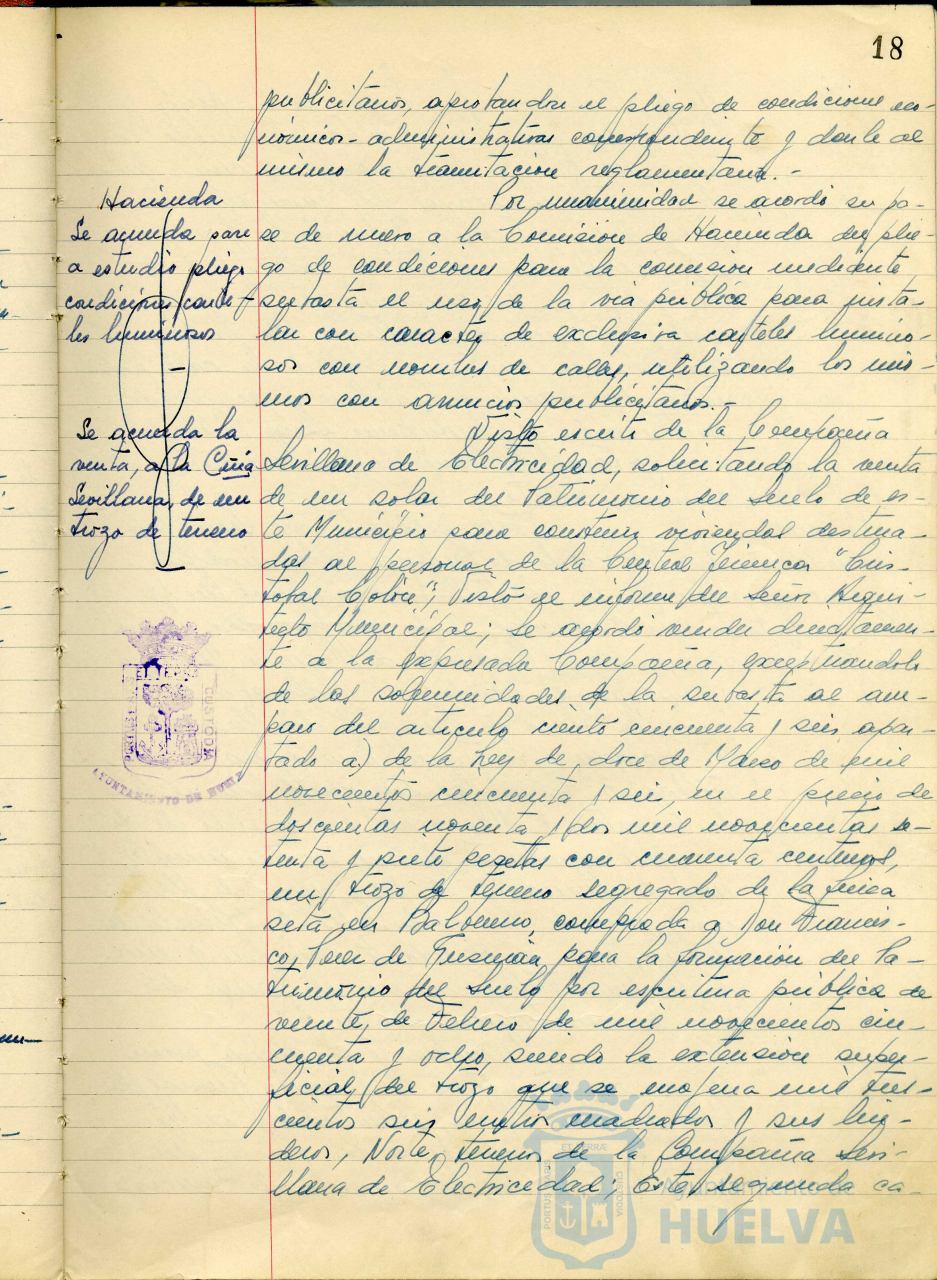 18
publicitarios, aprobandose el pliego de condiciones eco-
nómicos-administrativas correspondiente y darle al
mismo la tramitación reglamentaria.-
Hacienda
Se acuerda pase
a estudio pliego
condiciones carte-
les luminosos
Por unanimidad se acordó su pa-
se de nuevo a la Comisión de Hacienda del plie-
go de condiciones para la concesion mediante
subasta el uso de la via pública para insta-
lar con caracter de exclusiva carteles lumino-
sos con nombres de calles, utilizando los mis-
mos con anuncios publicitarios.-
Se acuerda la
venta, a la Cñía
Sevillana, de un
trozo de terreno
Visto escrito de la Compañia
Sevillana de Electricidad, solicitando la venta
de un solar del Patrimonio del Suelo de es-
te Municipio para construir viviendas destina-
das al personal de la Central Térmica "Cris-
tobal Colón"; Visto el informe del Señor Arqui-
tecto Municipal; se acordó vender directamen-
te a la expresada Compañia, exceptuandola
de las solemnidades de la subasta al am-
paro del articulo ciento cincuenta y seis apar-
tado a) de la Ley de doce de Mayo de mil
novecientos cincuenta y seis, en el precio de
doscientas noventa y dos mil novecientas se-
tenta y siete pesetas con cincuenta centimos,
un trozo de terreno segregado de la finca
sita en Balbueno, comprada a Don Francis-
co Perez de Guzmán para la formación del Pa-
trimonio del Suelo por escritura pública de
veinte de Febrero de mil novecientos cin-
cuenta y ocho, siendo la extensión super-
ficial del trozo que se enajena mil tres-
cientos seis metros cuadrados y sus lin-
deros, Norte, terrenos de la Compañia Sevi-
llana de Electricidad; Este, segunda ca-
PORTUS MARIS ET TERRÆ CUSTODIA
AYUNTAMIENTO DE HUELVA
PORTUS MARIS ET TERRÆ CUSTODIA
Ayuntamiento de
HUELVA